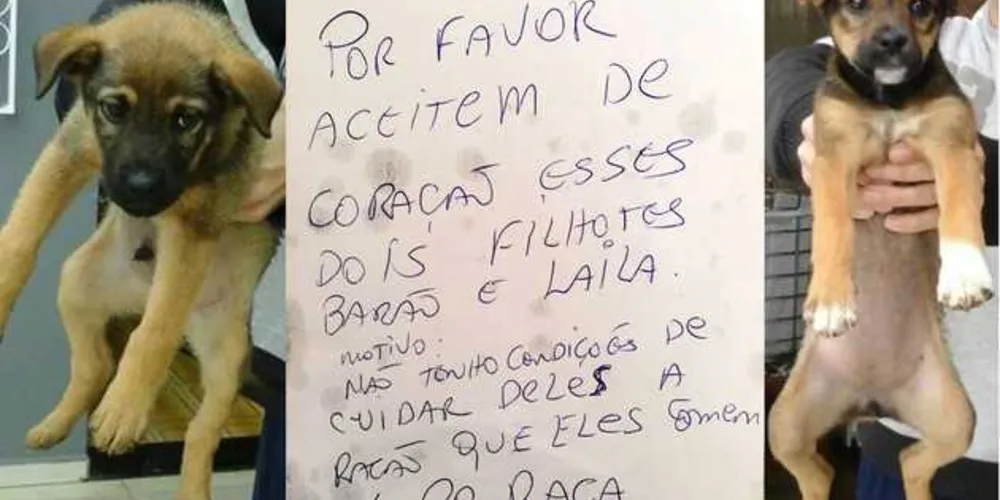 POR FAVOR
ACEITEM DE
CORAÇÃO ESSES
DOIS FILHOTES
BARÃO E LAILA.
MOTIVO:
NÃO TENHO CONDIÇÕES DE
CUIDAR DELES A
RAÇÃO QUE ELES COMEM
DO RAÇA